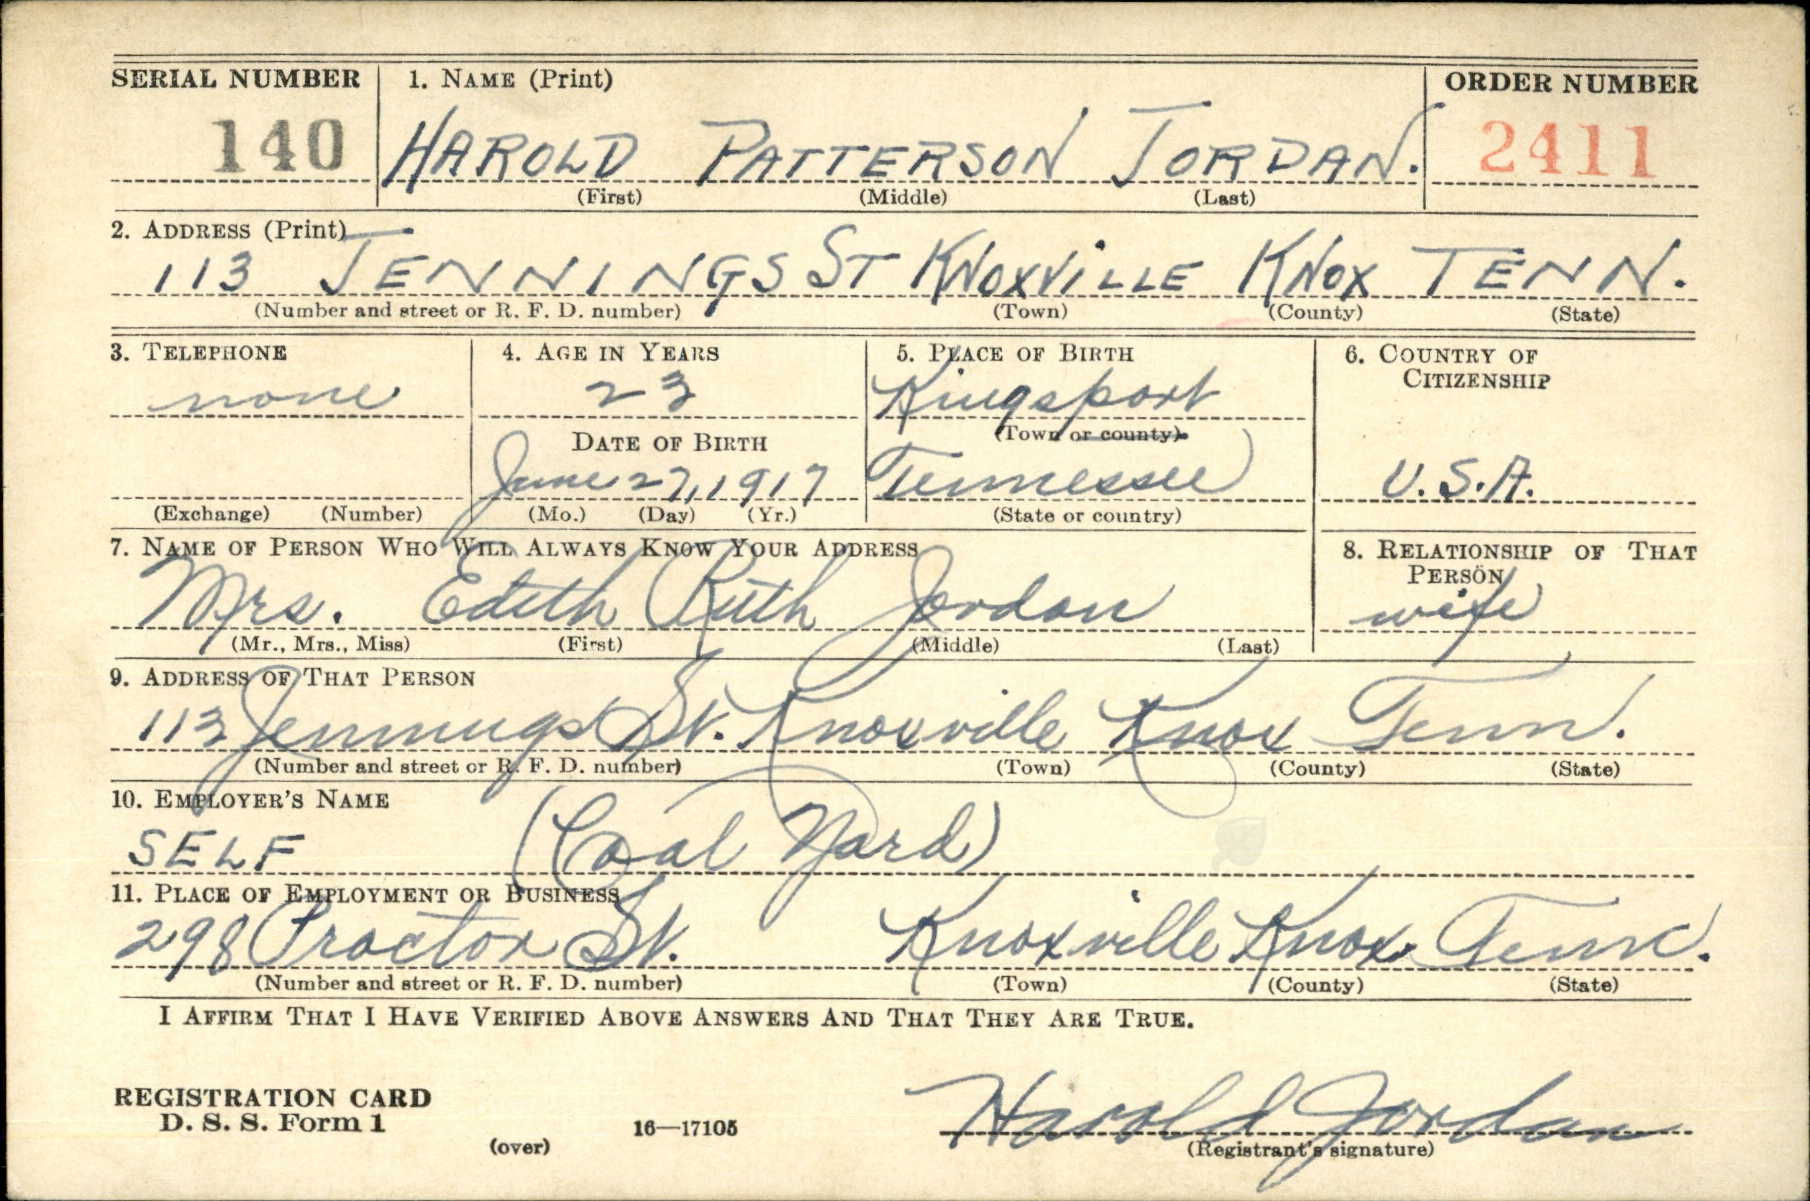 SERIAL NUMBER 1. NAME (Print) ORDER NUMBER
140 HAROLD PATTERSON JORDAN. 2411
(First) (Middle) (Last)
2. ADDRESS (Print)
113 JENNINGS ST KNOXVILLE KNOX TENN.
(Number and street or R. F. D. number) (Town) (County) (State)
3. TELEPHONE 4. AGE IN YEARS 5. PLACE OF BIRTH 6. COUNTRY OF
CITIZENSHIP
none 23 Kingsport
DATE OF BIRTH (Town or county)
June 27, 1917 Tennessee U.S.A.
(Exchange) (Number) (Mo.) (Day) (Yr.) (State or country)
7. NAME OF PERSON WHO WILL ALWAYS KNOW YOUR ADDRESS 8. RELATIONSHIP OF THAT
PERSON
Mrs. Edith Ruth Jordan wife
(Mr., Mrs., Miss) (First) (Middle) (Last)
9. ADDRESS OF THAT PERSON
113 Jennings St. Knoxville Knox Tenn.
(Number and street or R. F. D. number) (Town) (County) (State)
10. EMPLOYER'S NAME
SELF (Coal Yard)
11. PLACE OF EMPLOYMENT OR BUSINESS
298 Proctor St. Knoxville Knox Tenn.
(Number and street or R. F. D. number) (Town) (County) (State)
I AFFIRM THAT I HAVE VERIFIED ABOVE ANSWERS AND THAT THEY ARE TRUE.
REGISTRATION CARD
D. S. S. Form 1 Harold Jordan
(over) 16—17105 (Registrant's signature)